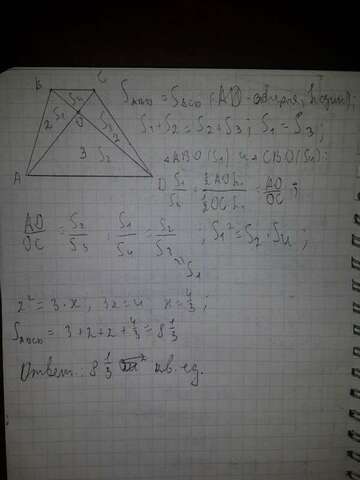 B C
S₁ S₄
2 O S₃
2
3 S₂
A D
S₁+S₂ = S₂+S₃ ; S₁ = S₃ ;
△ABO (S₁) и △CBO (S₄) :
S₁/S₄ = ½AO·h₁ / ½OC·h₁ = AO/OC ;
AO/OC = S₂/S₃ ; S₁/S₄ = S₂/S₃ ; S₁² = S₂ · S₄ ;
S₁
2² = 3·x, 3x = 4 x = 4/3 ;
S_ABCD = 3+2+2+4/3 = 8 1/3
Ответ: 8 1/3 кв. ед.